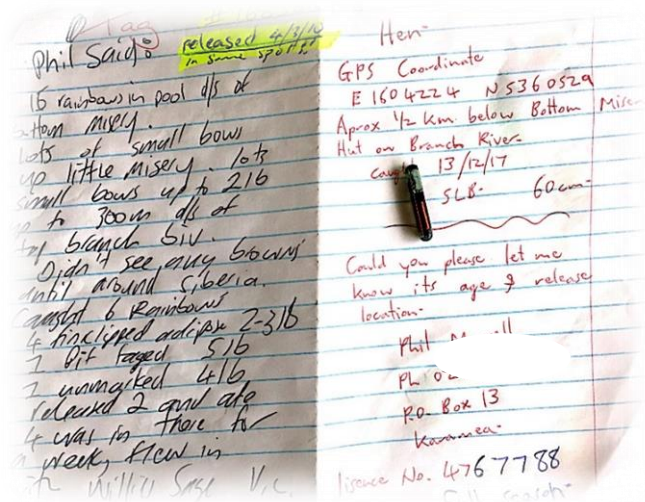 Tag
Phil Said:
released 4/3/10
in same spot
15 rainbows in pool d/s of
bottom Misery.
lots of small bows
up little Misery. lots
small bows up to 2lb
up to 300m d/s of
branch biv.
Didn't see any browns
until around Siberia.
caught 6 Rainbows
4 finclipped adipse 2-3lb
1 Pit taged 5lb
1 unmarked 4lb
released 2 and ate
4 was in there for
a week, flew in
with
Hen-
GPS Coordinate
E 1604224 N 5360529
Aprox 1/2 km below Bottom Miser
Hut on Branch River-
13/12/17
5LB- 60cm-
Could you please let me
know its age & release
location-
Phil
Ph
P.O. Box 13
Karamea-
lisence No. 4767788